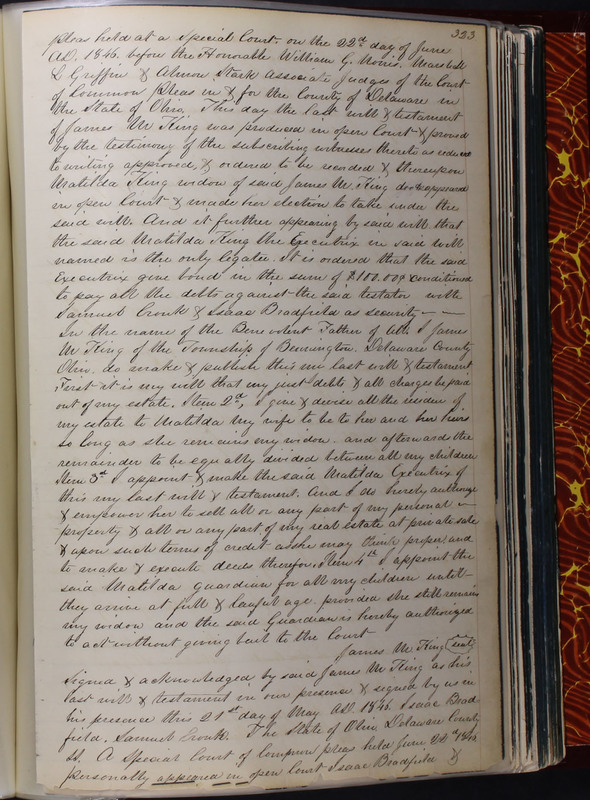 323
pleas held at a Special Court, on the 22nd day of June
AD. 1846. before the Honorable William G. Norris, Marshall
L Griffin & Almon Stark associate Judges of the Court
of Common Pleas in & for the County of Delaware in
the State of Ohio. This day the last will & testament
of James M King was produced in open Court & proved
by the testimony of the subscribing witnesses thereto as reduced
to writing approved, & ordered to be recorded & thereupon
Matilda King widow of said James M. King appeared
in open Court & made her election to take under the
said will. And it further appearing by said will that
the said Matilda King the Executrix in said will
named is the only legatee. It is ordered that the said
Executrix give bond in the sum of $100.00 conditioned
to pay all the debts against the said testator with
Samuel Cronk & Isaac Bradfield as security — —
In the name of the Benevolent Father of all I James
M King of the Township of Bennington, Delaware County
Ohio. do make & publish this my last will & testament
First it is my will that my just debts & all charges be paid
out of my estate. Item 2nd, I give & devise all the residue of
my estate to Matilda my wife to be to her and her heirs
so long as she remains my widow. and afterward the
remainder to be equally divided between all my children
Item 3d I appoint & make the said Matilda Executrix of
this my last will & testament. And I do hereby authorize
& empower her to sell all or any part of my personal —
property & all or any part of my real estate at private sale
& upon such terms of credit as she may think proper, and
to make & execute deeds therefor. Item 4th I appoint the
said Matilda guardian for all my children until —
they arrive at full & lawful age. provided she still remains
my widow and the said Guardian is hereby authorized
to act without giving bail to the Court
James M King (seal)
Signed & acknowledged by said James M King as his
last will & testament in our presence & signed by us in
his presence this 21st day of May AD. 1846. Isaac Brad-
field. Samuel Cronk. The State of Ohio Delaware County
ss. A Special Court of Common pleas held June 22nd 1846
personally appeared in open Court Isaac Bradfield &